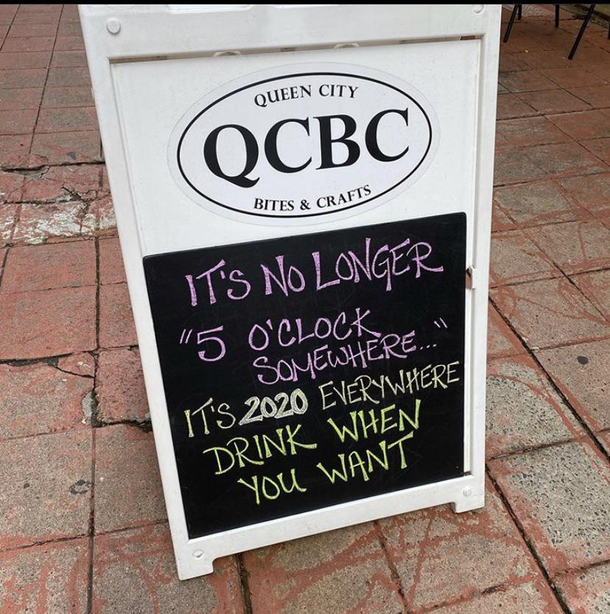 QUEEN CITY
QCBC
BITES & CRAFTS
IT'S NO LONGER
"5 O'CLOCK
SOMEWHERE..."
IT'S 2020 EVERYWHERE
DRINK WHEN
YOU WANT